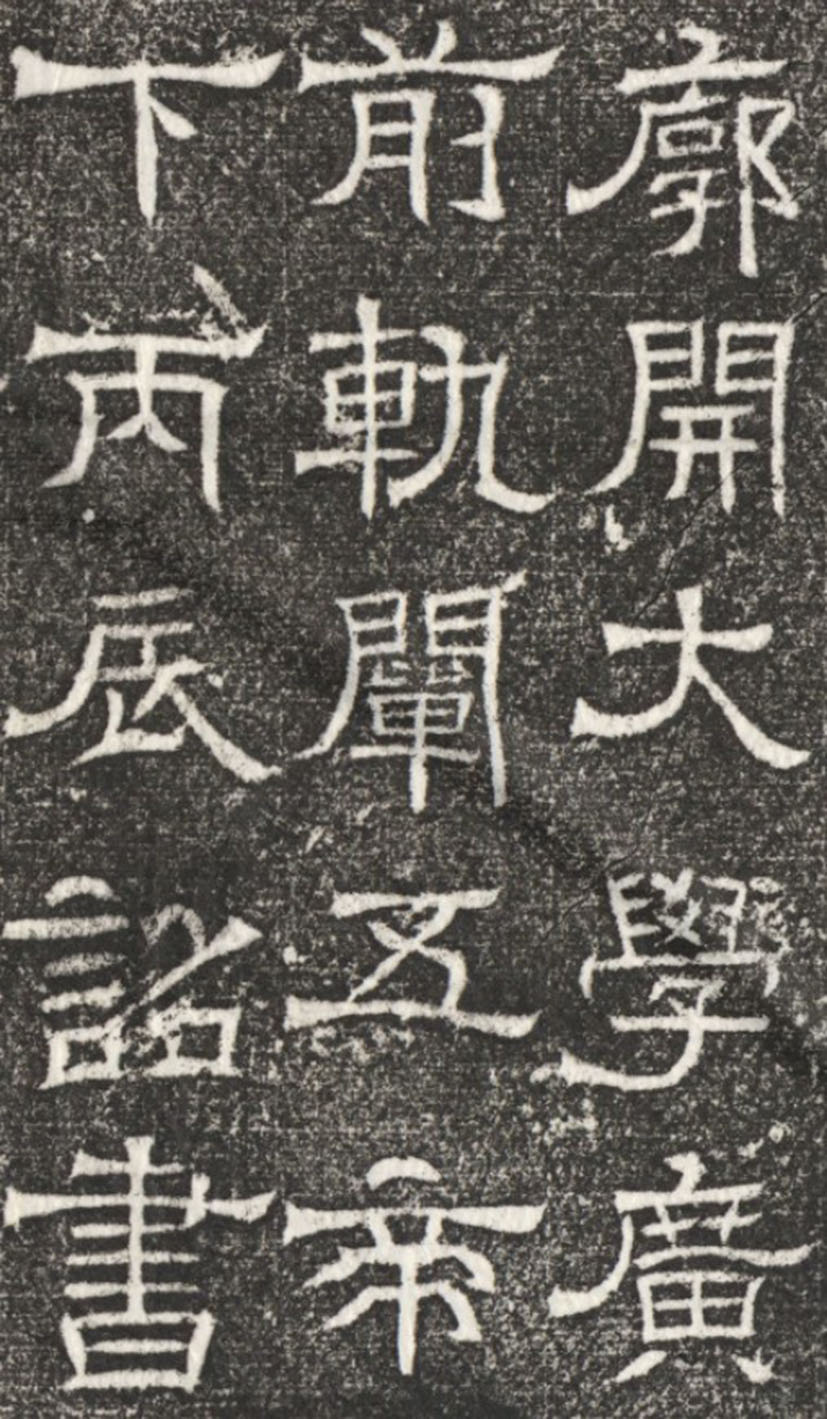 廓開大學廣
前軌闡五帝
下丙辰詔書